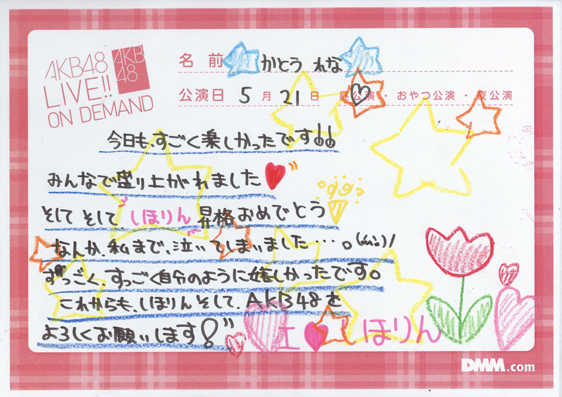 AKB48
LIVE!!
ON DEMAND
AKB
48
名前 かとう れな
公演日 5月21日 昼公演・おやつ公演・夜公演
今日も、すごく楽しかったです!!
みんなで盛り上がれました♥"
そして そして しほりん 昇格おめでとう
なんか、私まで、泣いてしまいました…。
すっごく すっごく自分のように嬉しかったです。
これからも、しほりんそして、AKB48を
よろしくお願いします!"
I♥しほりん
DMM.com